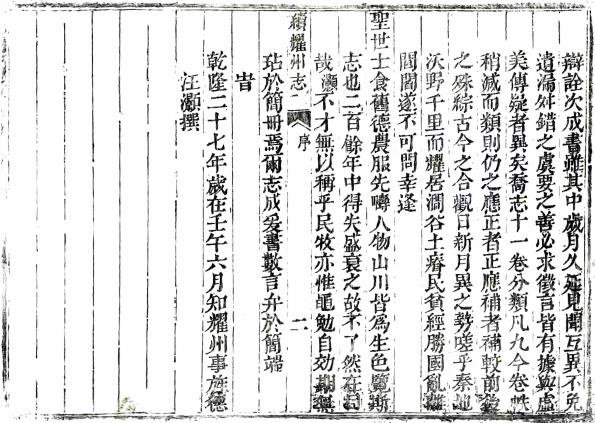 辯詮次成書雖其中歲月久延見聞互異不免
遺漏舛錯之虞要之善必求徵言皆有據與虛
美傳疑者異矣喬志十一卷分類凡九今卷帙
稍減而類則仍之應正者正應補者補較前後
之殊綜古今之合觀日新月異之勢嗟乎秦地
沃野千里而耀居澗谷土瘠民貧經勝國亂離
閭閻遂不可問幸逢
聖世士食舊德農服先疇人物山川皆爲生色覽斯
志也二百餘年中得失盛衰之故不了然在目
哉灝不才無以稱乎民牧亦惟黽勉自効期無
玷於簡冊焉爾志成爰書數言弁於簡端
旹
乾隆二十七年歲在壬午六月知耀州事旌德
汪灝撰
續耀州志
序
二